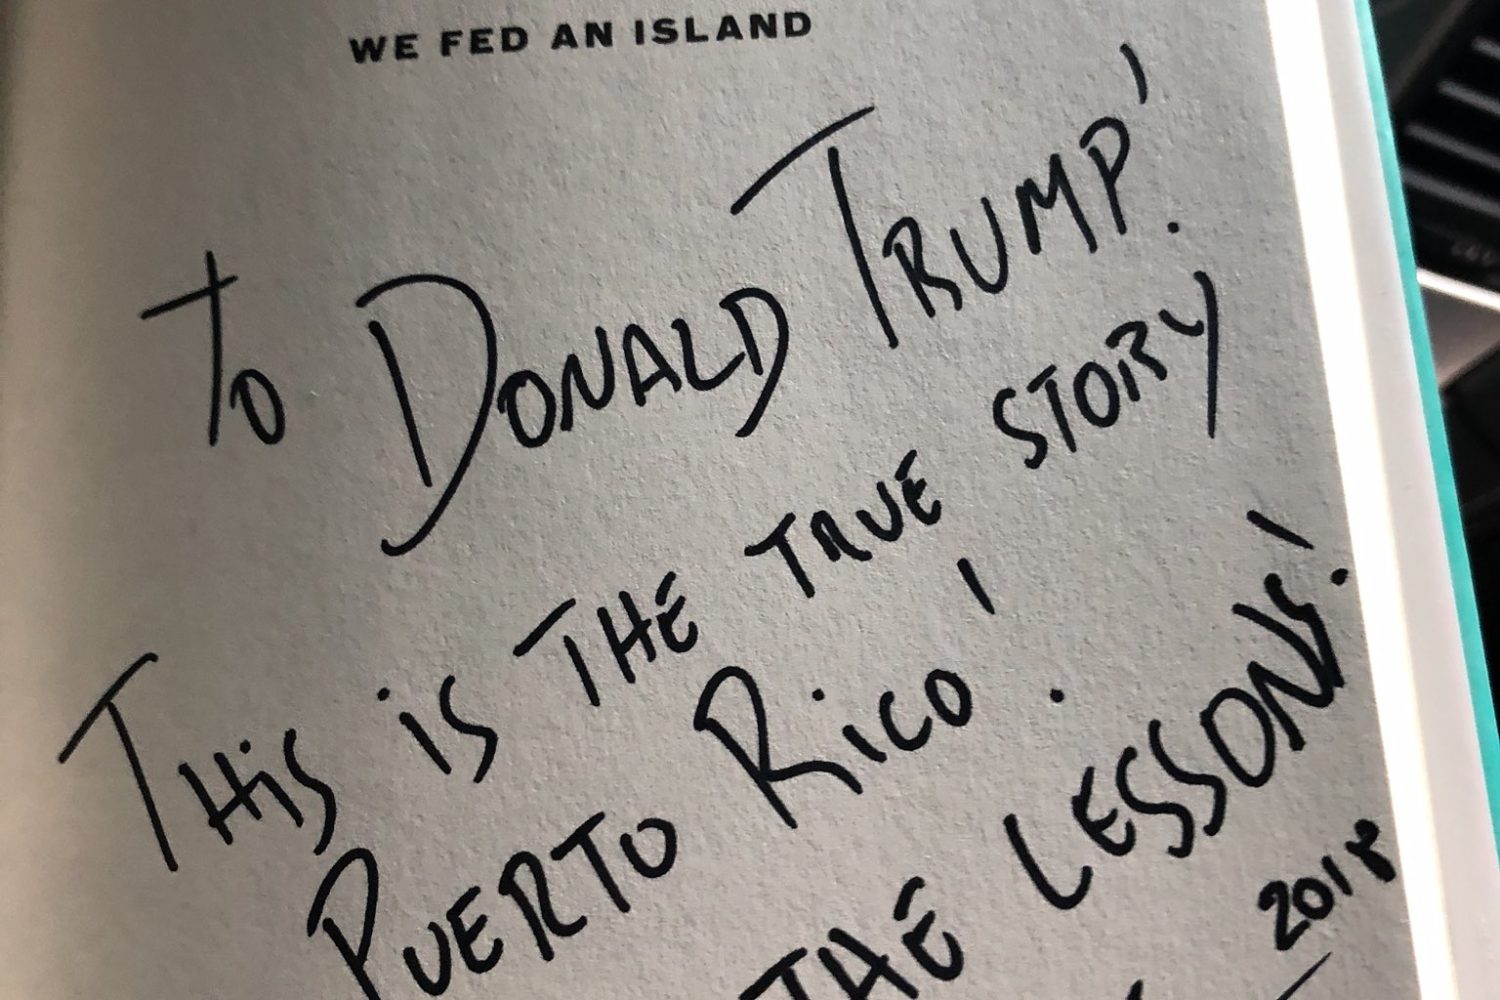 WE FED AN ISLAND
To DONALD TRUMP!
THiS iS THE TRUE STORY
PUERTO RiCO!
THE LESSONS!
2018